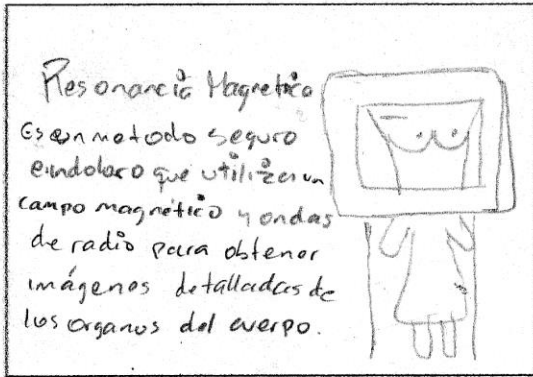 Resonancia Magnetica
Es un metodo seguro
e indoloro que utiliza un
campo magnético y ondas
de radio para obtener
imágenes detalladas de
los organos del cuerpo.